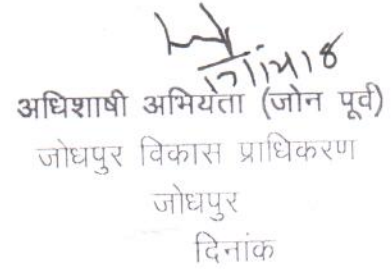 अधिशाषी अभियंता (जोन पूर्व)
जोधपुर विकास प्राधिकरण
जोधपुर
दिनांक